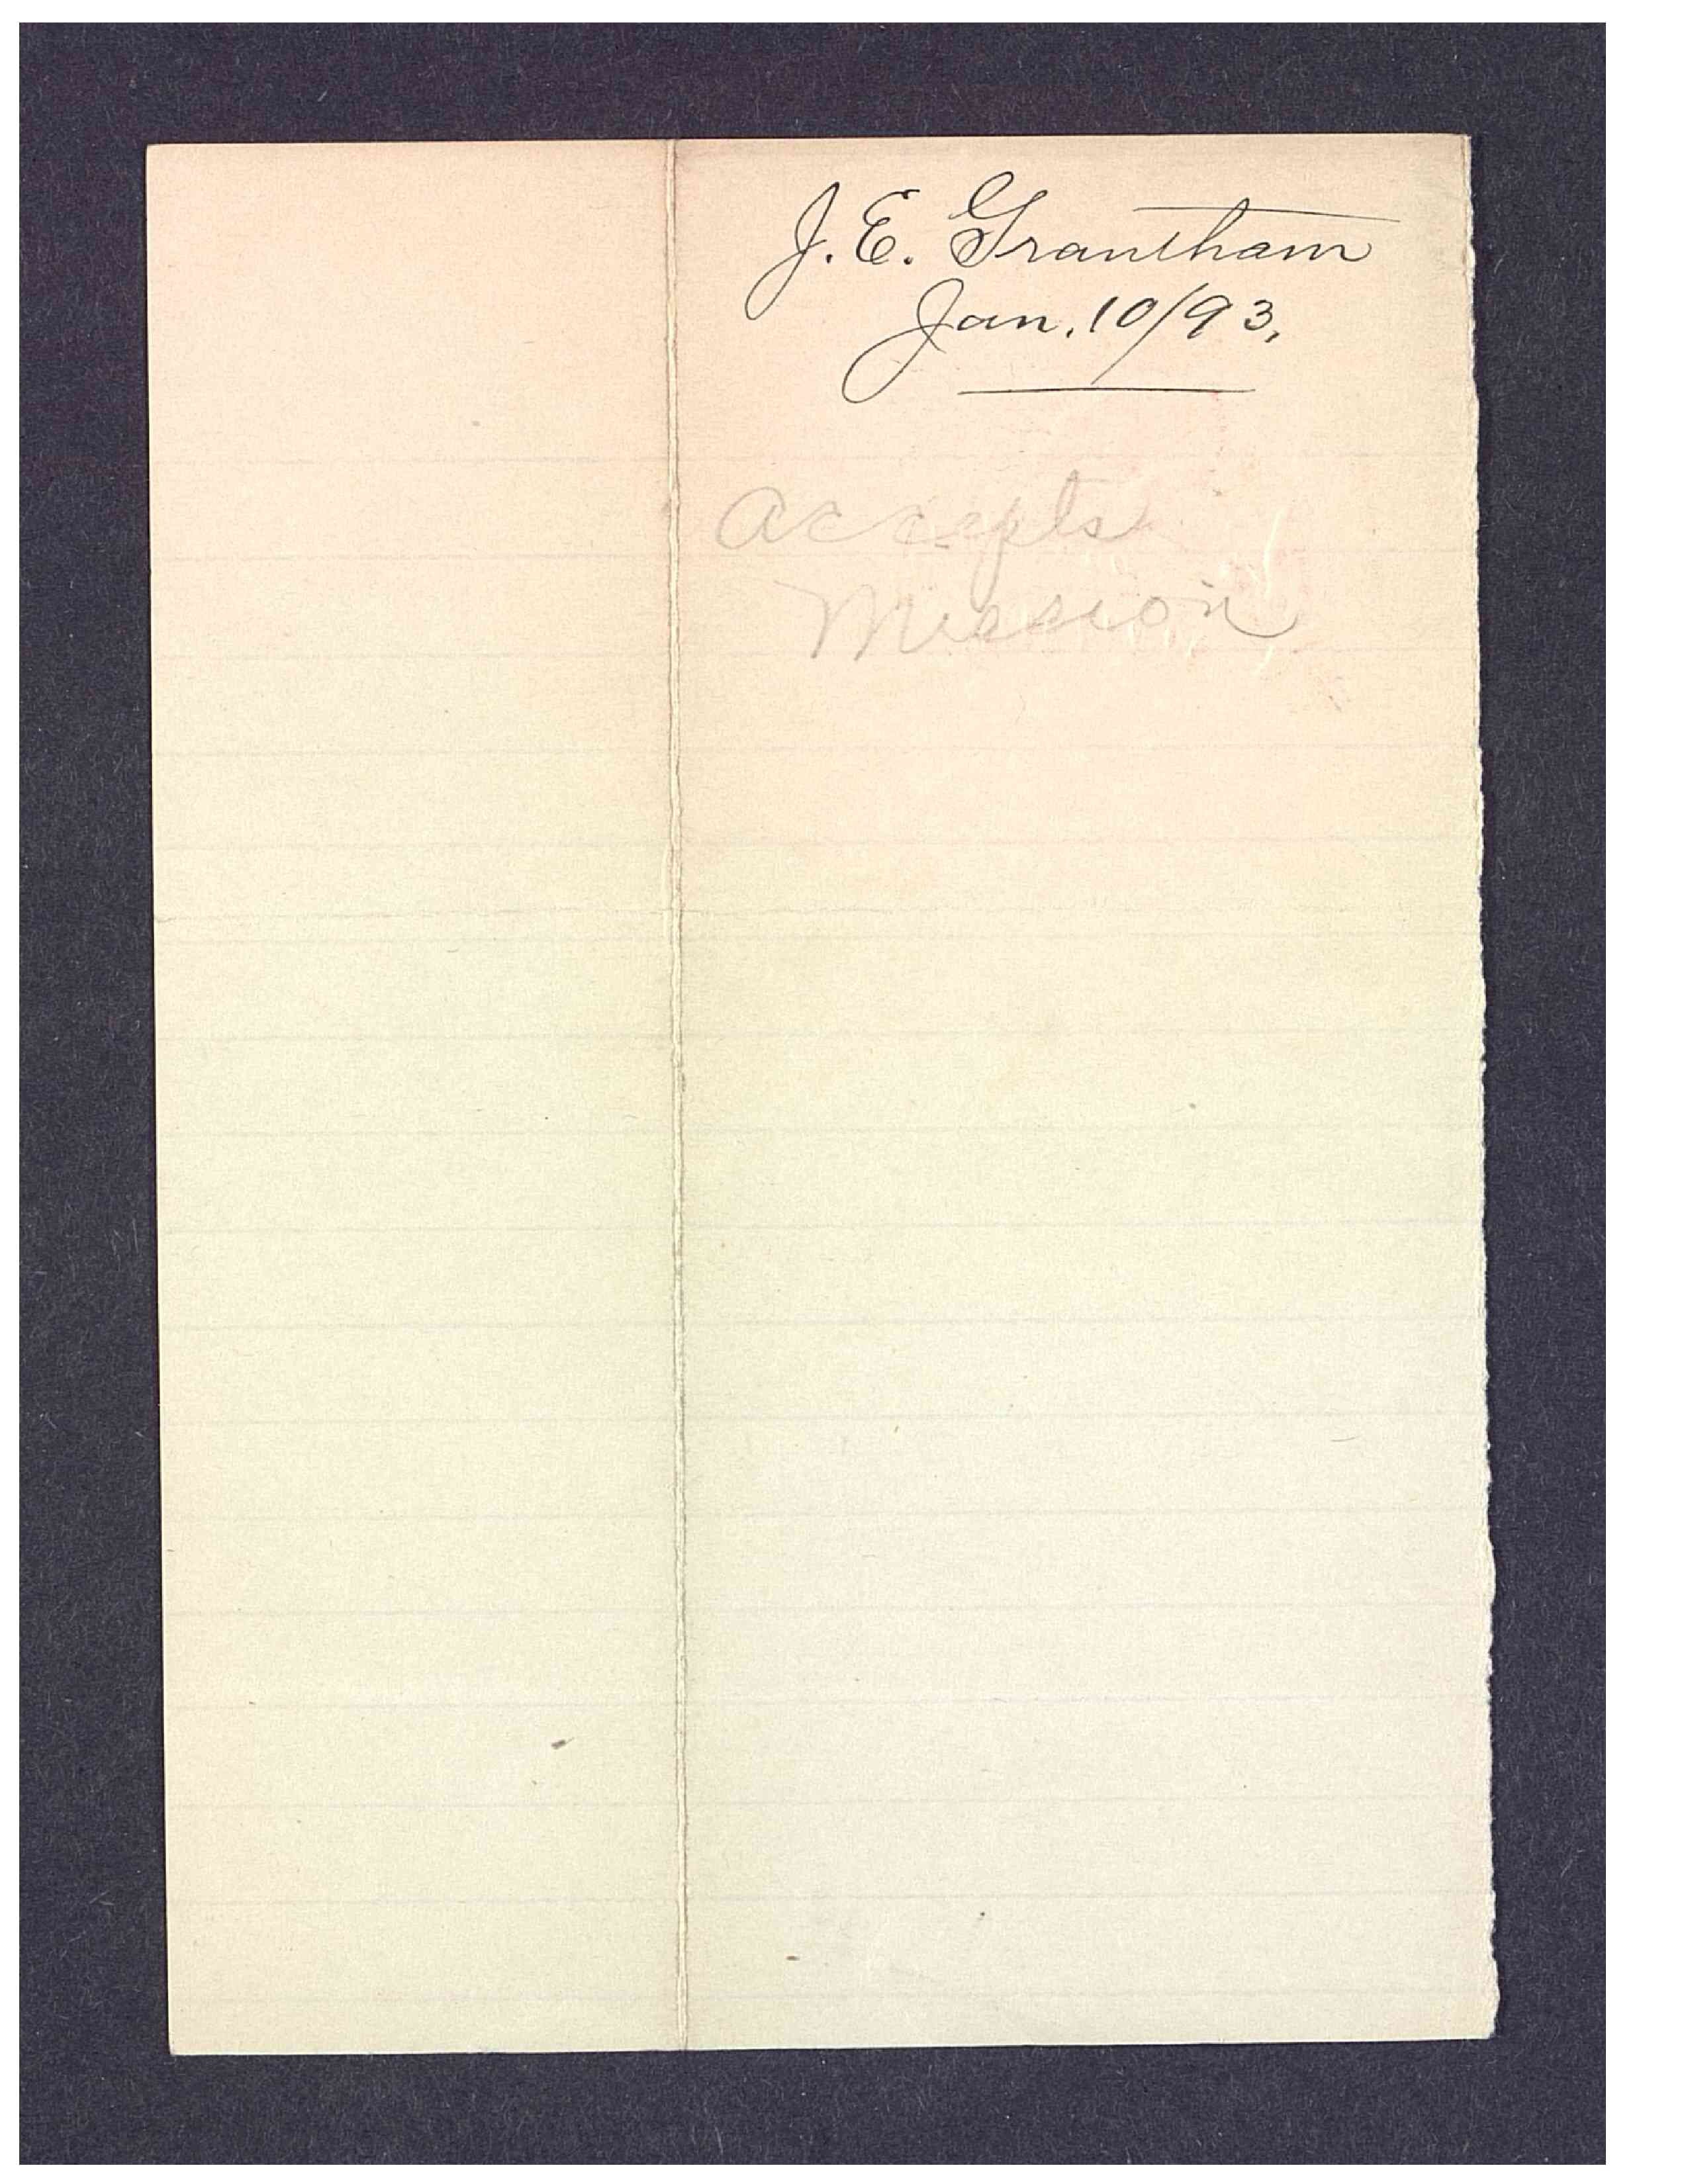 J. E. Grantham
Jan. 10/93.
accepts
Mission